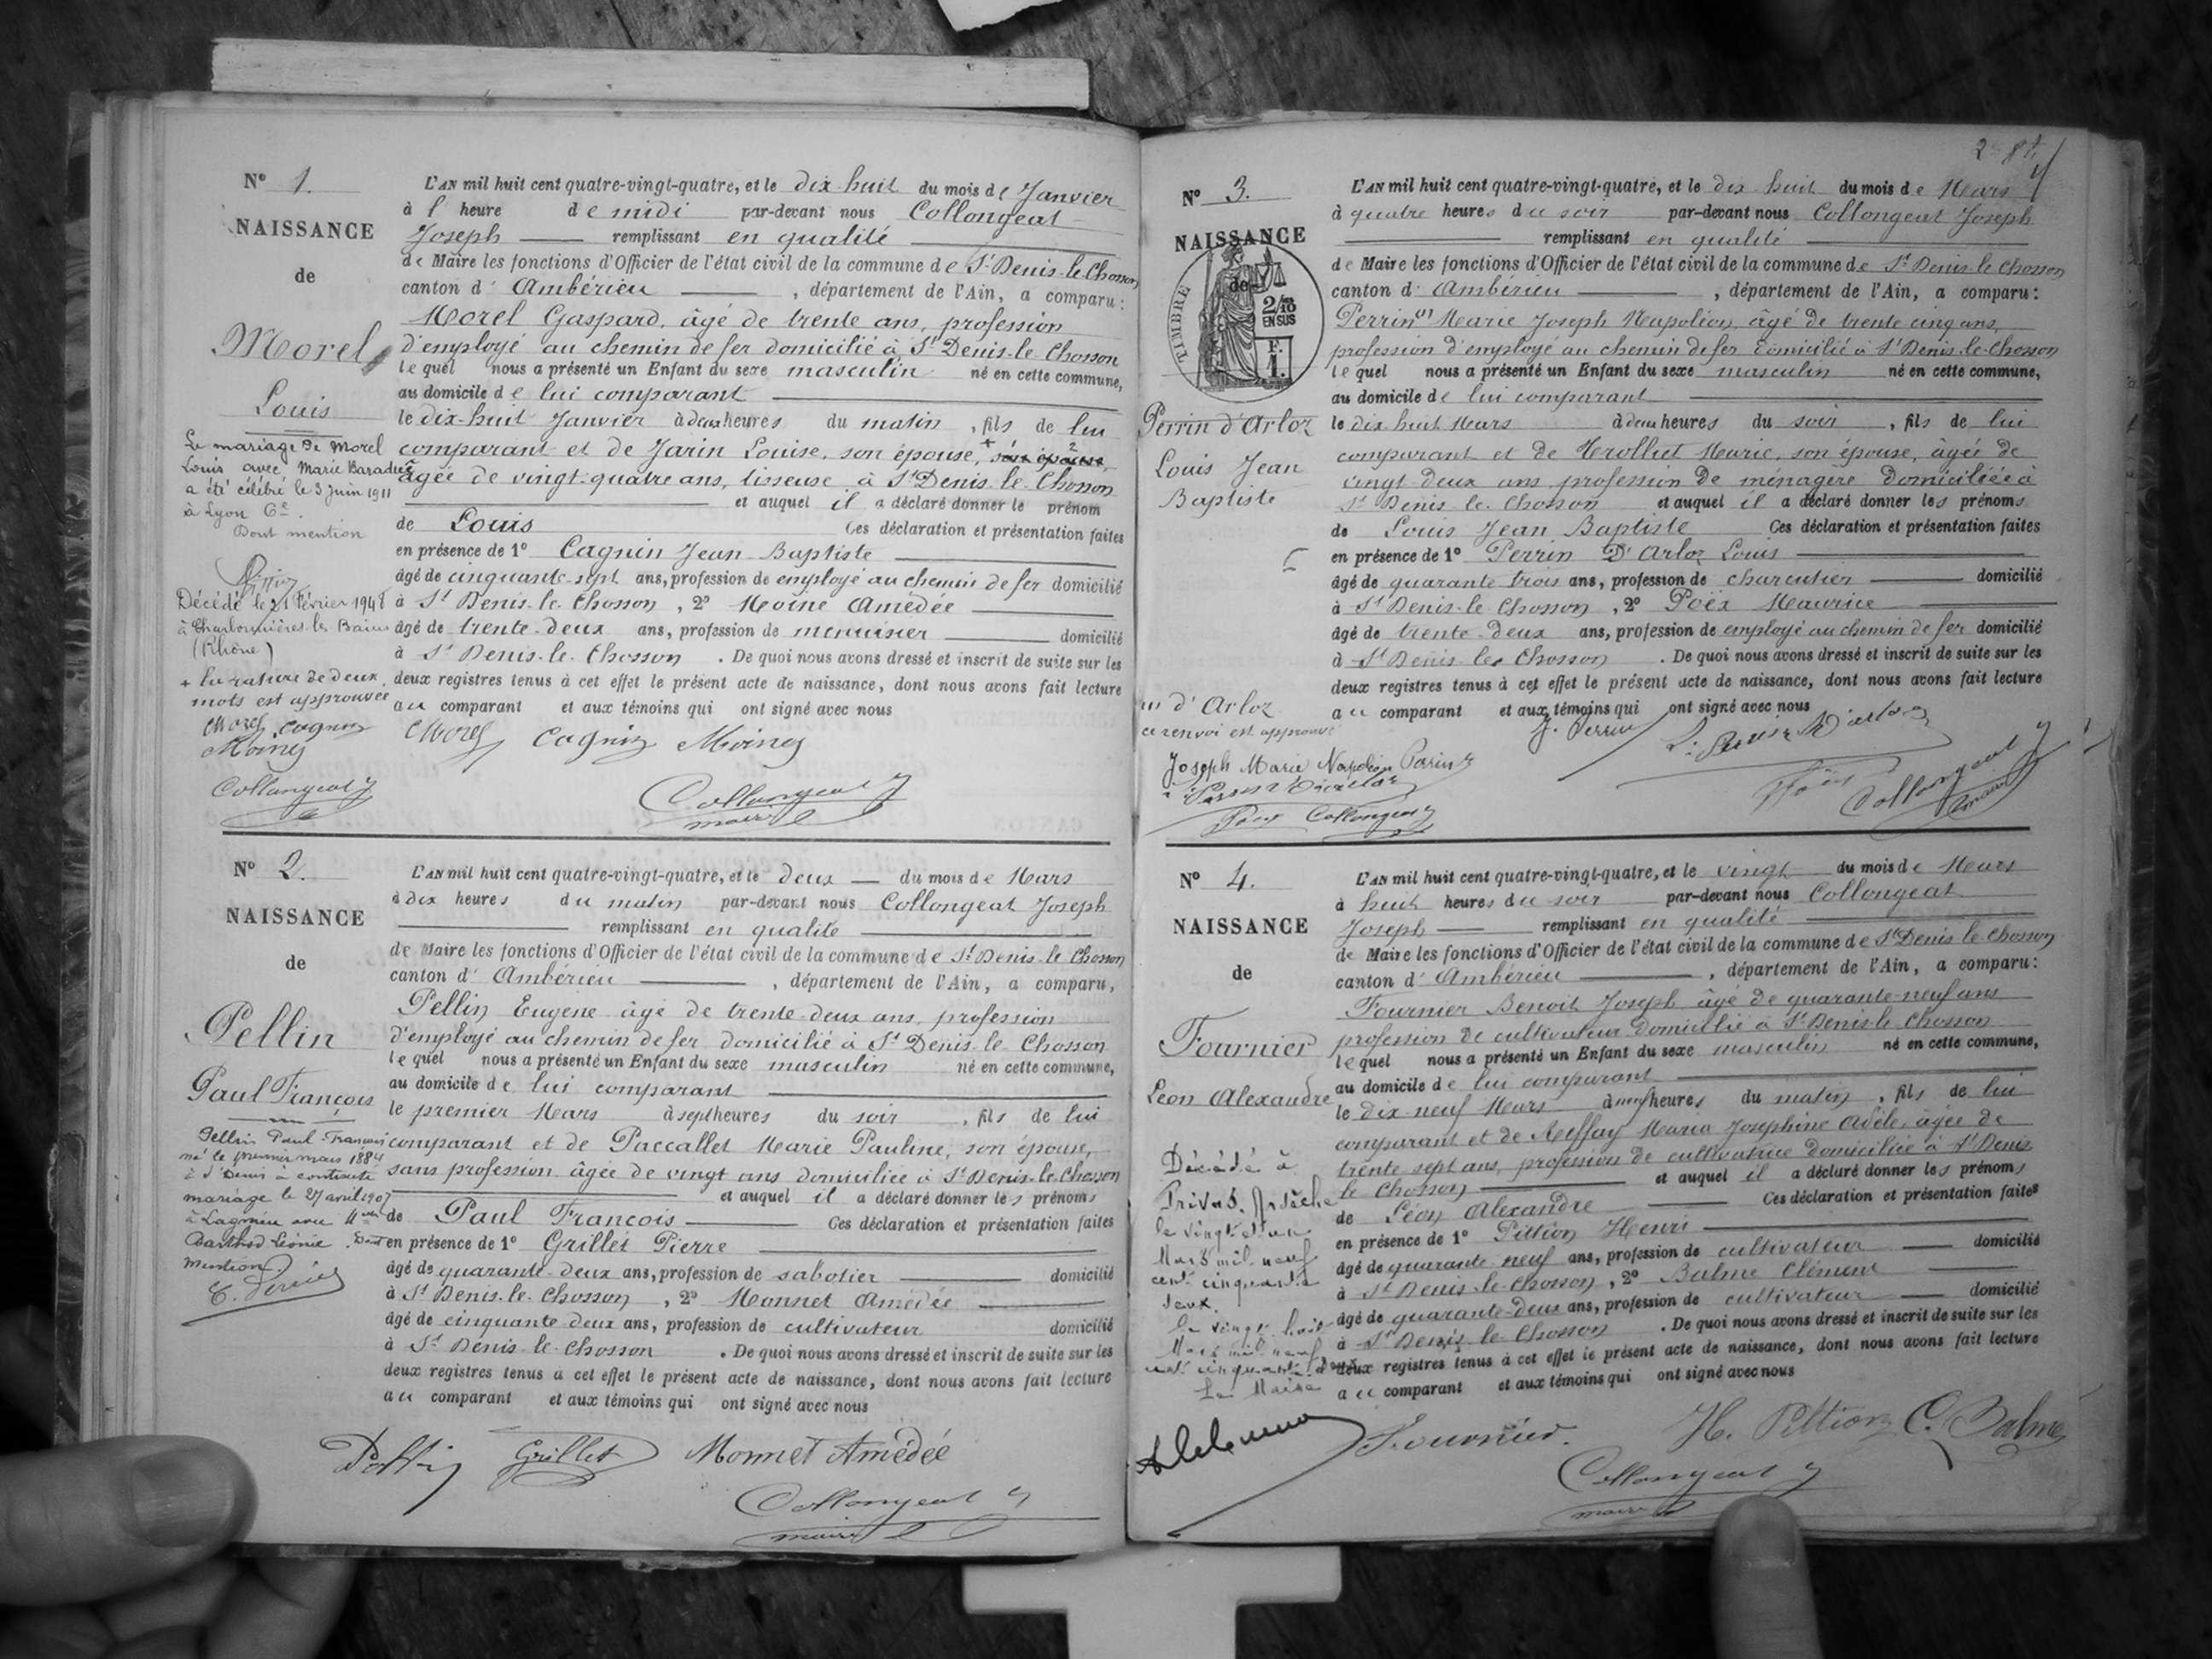 N° 1.
NAISSANCE
de
Morel
Louis
Le mariage de Morel
Louis avec Marie Baraduc
a été célébré le 3 juin 1911
à Lyon 6e.
Dont mention
Décédé le 21 Février 1948
à Charbonnières les Bains
(Rhône)
+ la rature de deux
mots est approuvée
Morel Cagnin
Moine
Collongeat
L'AN mil huit cent quatre-vingt-quatre, et le dix-huit du mois de Janvier
à 1 heure de midi par-devant nous Collongeat
Joseph remplissant en qualité
de Maire les fonctions d'Officier de l'état civil de la commune de St Denis-le-Chosson
canton d' Ambérieu , département de l'Ain, a comparu :
Morel Gaspard, âgé de trente ans, profession
d'employé au chemin de fer domicilié à St Denis-le Chosson
lequel nous a présenté un Enfant du sexe masculin né en cette commune,
au domicile de lui comparant
le dix-huit Janvier à deux heures du matin , fils de lui
comparant et de Jarin Louise, son épouse, + son épouse,
âgée de vingt-quatre ans, tisseuse à St Denis-le-Chosson
et auquel il a déclaré donner le prénom
de Louis Ces déclaration et présentation faites
en présence de 1° Cagnin Jean-Baptiste
âgé de cinquante-sept ans, profession de employé au chemin de fer domicilié
à St Denis-le-Chosson , 2° Moine Amédée
âgé de trente-deux ans, profession de menuisier domicilié
à St Denis-le-Chosson . De quoi nous avons dressé et inscrit de suite sur les
deux registres tenus à cet effet le présent acte de naissance, dont nous avons fait lecture
au comparant et aux témoins qui ont signé avec nous
Morel Cagnin Moine
Collongeat
maire
N° 2.
NAISSANCE
de
Pellin
Paul François
Pellin Paul François
né le premier mars 1884
à St Denis a contracté
mariage le 27 avril 1907
à Lagnieu avec Melle
Barthod Léonie. Dont
mention.
L'AN mil huit cent quatre-vingt-quatre, et le deux du mois de Mars
à dix heures du matin par-devant nous Collongeat Joseph
remplissant en qualité
de Maire les fonctions d'Officier de l'état civil de la commune de St Denis-le Chosson
canton d' Ambérieu , département de l'Ain, a comparu,
Pellin Eugène âgé de trente-deux ans, profession
d'employé au chemin de fer domicilié à St Denis-le Chosson
lequel nous a présenté un Enfant du sexe masculin né en cette commune,
au domicile de lui comparant
le premier Mars à sept heures du soir , fils de lui
comparant et de Paccallet Marie Pauline, son épouse,
sans profession âgée de vingt ans domiciliée à St Denis-le-Chosson
et auquel il a déclaré donner les prénoms
de Paul François Ces déclaration et présentation faites
en présence de 1° Grillet Pierre
âgé de quarante-deux ans, profession de sabotier domicilié
à St Denis-le-Chosson , 2° Monnet Amédée
âgé de cinquante-deux ans, profession de cultivateur domicilié
à St Denis-le-Chosson . De quoi nous avons dressé et inscrit de suite sur les
deux registres tenus à cet effet le présent acte de naissance, dont nous avons fait lecture
au comparant et aux témoins qui ont signé avec nous
Pellin Grillet Monnet Amédée
Collongeat
maire
N° 3.
NAISSANCE
de
TIMBRE
2/10
EN SUS
F.
1.
Perrin d'Arloz
Louis Jean
Baptiste
d'Arloz
ce renvoi est approuvé
Joseph Marie Napoléon Perrin
Collongeat
L'AN mil huit cent quatre-vingt-quatre, et le dix huit du mois de Mars
à quatre heures du soir par-devant nous Collongeat Joseph
remplissant en qualité
de Maire les fonctions d'Officier de l'état civil de la commune de St Denis-le Chosson
canton d' Ambérieu , département de l'Ain, a comparu :
Perrin Marie Joseph Napoléon, âgé de trente cinq ans,
profession d'employé au chemin de fer domicilié à St Denis-le-Chosson
lequel nous a présenté un Enfant du sexe masculin né en cette commune,
au domicile de lui comparant
le dix huit Mars à deux heures du soir , fils de lui
comparant et de Trolliet Marie, son épouse, âgée de
vingt-deux ans profession de ménagère domiciliée à
St Denis-le-Chosson et auquel il a déclaré donner les prénoms
de Louis Jean Baptiste Ces déclaration et présentation faites
en présence de 1° Perrin D'Arloz Louis
âgé de quarante trois ans, profession de charcutier domicilié
à St Denis-le-Chosson , 2° Poëx Maurice
âgé de trente-deux ans, profession de employé au chemin de fer domicilié
à St Denis-le-Chosson . De quoi nous avons dressé et inscrit de suite sur les
deux registres tenus à cet effet le présent acte de naissance, dont nous avons fait lecture
au comparant et aux témoins qui ont signé avec nous
J. Perrin
Collongeat
maire
N° 4.
NAISSANCE
de
Fournier
Léon Alexandre
Décédé à
Privas, Ardèche
le vingt
Mars mil neuf
cent cinquante
deux.
Mars mil neuf
cent cinquante-deux
Le Maire
L'AN mil huit cent quatre-vingt-quatre, et le vingt du mois de Mars
à huit heures du soir par-devant nous Collongeat
Joseph remplissant en qualité
de Maire les fonctions d'Officier de l'état civil de la commune de St Denis-le-Chosson
canton d' Ambérieu , département de l'Ain, a comparu :
Fournier Benoit Joseph âgé de quarante-neuf ans
profession de cultivateur domicilié à St Denis-le Chosson
lequel nous a présenté un Enfant du sexe masculin né en cette commune,
au domicile de lui comparant
le dix-neuf Mars à neuf heures du matin , fils de lui
comparant et de Maria Josephine Adèle, âgée de
trente sept ans, profession de cultivatrice domiciliée à St Denis
le Chosson et auquel il a déclaré donner les prénoms
de Léon Alexandre Ces déclaration et présentation faites
en présence de 1° Pittion Henri
âgé de quarante neuf ans, profession de cultivateur domicilié
à St Denis-le-Chosson , 2° Balme Clément
âgé de quarante-deux ans, profession de cultivateur domicilié
à St Denis-le-Chosson . De quoi nous avons dressé et inscrit de suite sur les
deux registres tenus à cet effet le présent acte de naissance, dont nous avons fait lecture
au comparant et aux témoins qui ont signé avec nous
Fournier. H. Pittion C. Balme
Collongeat
maire